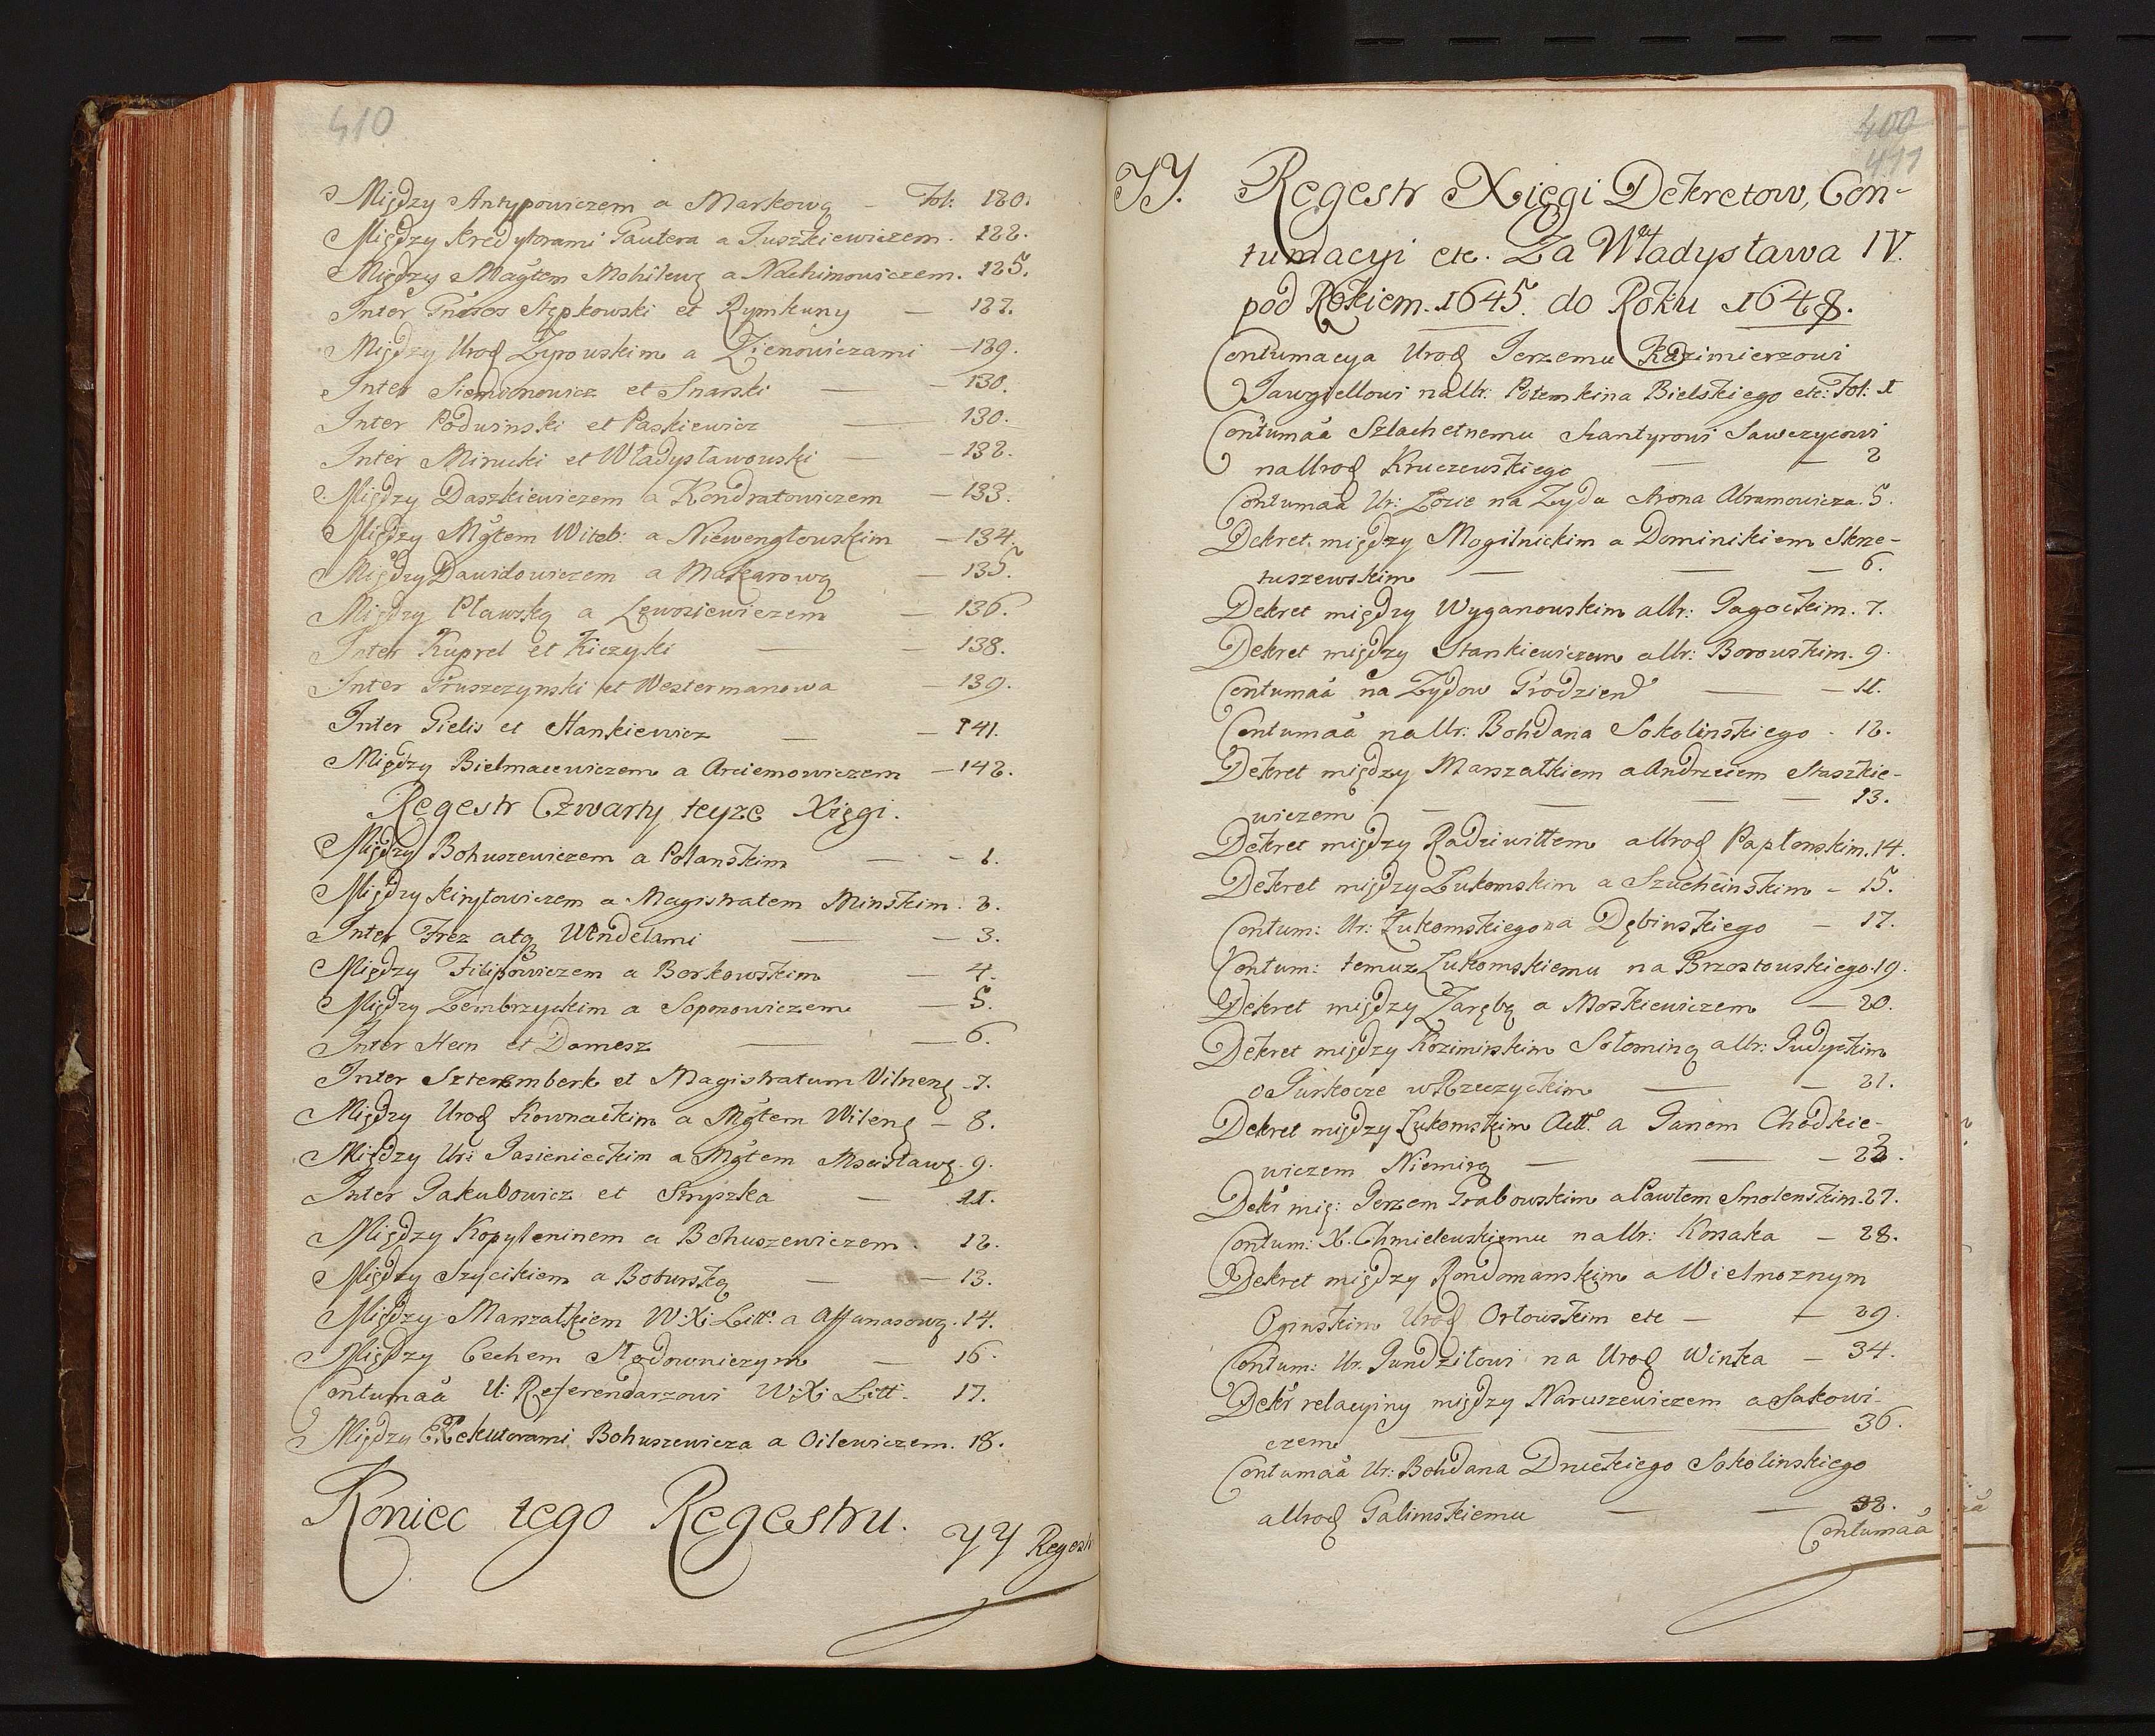 410
Między Antypowiczem a Markową — Fol: 120.
Między Kredytorami Gautera a Juszkiewiczem. 122.
Między Magtem Mohilewſ a Nachimowiczem. 125.
Inter Gnosos Stępkowski et Rymkuny — 127.
Między Urodſ Zyrowskim a Zienowiczami — 129.
Inter Siemionowicz et Snarski — 130.
Inter Podwinski et Paskiewicz — 130.
Inter Mirucki et Władysławowski — 132.
Między Daszkiewiczem a Kondratowiczem — 133.
Między Mgtem Witeb: a Niewengłowskim — 134.
Między Dawidowiczem a Makarową — 135.
Między Pławską a Lewoniewiczem — 136.
Inter Kuprel et Kiczyki — 138.
Inter Pruszczynski et Westermanowa — 139.
Inter Gielis et Hankiewicz — 141.
Między Bielmacewiczem a Arciemowiczem — 142.
Regestr Czwarty teyze Xięgi.
Między Bohuszewiczem a Polanskim — 1.
Między Kiryłowiczem a Magistratem Minskim. 2.
Inter Frez atq Wendelami — 3.
Między Filipowiczem a Borkowskim — 4.
Między Zembrzyckim a Soponowiczem — 5.
Inter Hein et Domesz — 6.
Inter Szteremberk et Magistratum Vilnenſ — 7.
Między Urodſ Kownackim a Mgtem Wilenſ — 8.
Między Ur: Jasienieckim a Mgtem Mscisławſ. 9.
Inter Jakubowicz et Stryszka — 11.
Między Kopyleninem a Bohuszewiczem. 12.
Między Szycikiem a Boturską — 13.
Między Marszałkiem W: X: Litt: a Affanasową. 14.
Między Cechem Słodowniczym — 16.
Contumaa U: Referendarzowi W: X: Litt. 17.
Między Exekutorami Bohuszewicza a Oilewiczem. 18.
Koniec tego Regestru.
YY Regestr
400
411
YY. Regestr Xięgi Dekretow, Con-
tumacyi etc. Za Władysława IV.
pod Rokiem. 1645. do Roku 1648.
Contumacya Urodſ Jerzemu Kazimierzowi
Jawgiellowi na Ur: Potemkina Bielskiego etc: Fol: 1
Contumaa Szlachetnemu Szantyrowi Sawczycowi
na Urodſ Kruczewskiego — 2
Contumaa Ur: Łozie na Zyda Arona Abramowicza. 5.
Dekret między Mogilnickim a Dominikiem Skrze-
tuszewskim — 6.
Dekret między Wyganowskim a Ur: Jagockim. 7.
Dekret między Stankiewiczem a Ur: Borowskim. 9.
Contumaa na Zydow Grodzień — 11.
Contumaa na Ur: Bohdana Sokolinskiego. 12.
Dekret między Marszałkiem a Andrzeiem Staszkie-
wiczem — 13.
Dekret między Radziwiłłem a Urodſ Papłonskim. 14.
Dekret między Łukomskim a Szuchcinskim — 15.
Contum: Ur: Łukomskiego na Dębinskiego — 17.
Contum: temuz Łukomskiemu na Brzostowskiego. 19.
Dekret między Zarębą a Moskiewiczem — 20.
Dekret między Kozimirskim Sołominą a Ur: Judyckim
o Jurkowze w Rzeczyckim — 21.
Dekret między Łukomskim Act. a Janem Chodkie-
wiczem Niemirą — 23.
Dekr mię: Jerzem Grabowskim a Pawłem Smolenskim. 27.
Contum: X. Chmielewskiemu na Ur: Kossaka — 28.
Dekret między Rondomanskim a Wielmoznym
Oginskim Urodſ Orłowskim etc — 29.
Contum: Ur. Gundziłowi na Urodſ Winka — 34.
Dekr relacyiny między Naruszewiczem a Sakowi-
czem — 36.
Contumaa Ur: Bohdana Druckiego Sokolinskiego
a Urodſ Galimskiemu — 38.
Contumaa